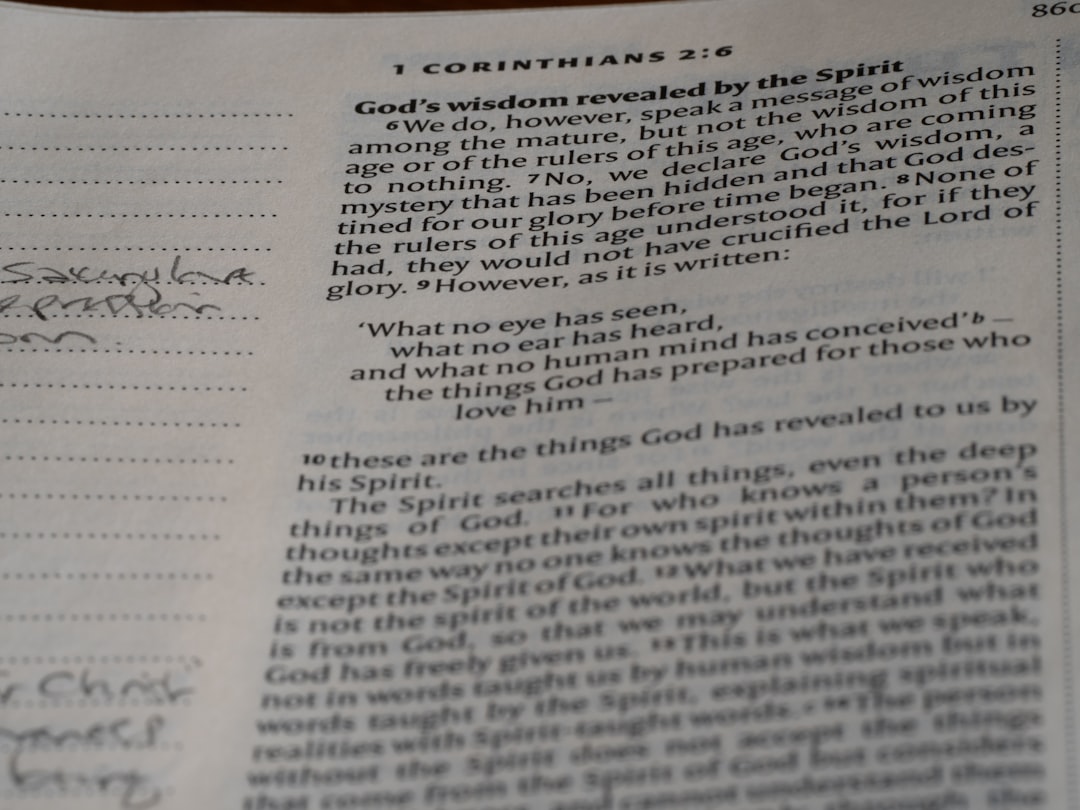 860
1 CORINTHIANS 2:6
God's wisdom revealed by the Spirit
6 We do, however, speak a message of wisdom
among the mature, but not the wisdom of this
age or of the rulers of this age, who are coming
to nothing. 7 No, we declare God's wisdom, a
mystery that has been hidden and that God des-
tined for our glory before time began. 8 None of
the rulers of this age understood it, for if they
had, they would not have crucified the Lord of
glory. 9 However, as it is written:
'What no eye has seen,
what no ear has heard,
and what no human mind has conceived' b —
the things God has prepared for those who
love him —
10 these are the things God has revealed to us by
his Spirit.
The Spirit searches all things, even the deep
things of God. 11 For who knows a person's
thoughts except their own spirit within them? In
the same way no one knows the thoughts of God
except the Spirit of God. 12 What we have received
is not the spirit of the world, but the Spirit who
is from God, so that we may understand what
God has freely given us. 13 This is what we speak,
not in words taught us by human wisdom but in
words taught by the Spirit, explaining spiritual
realities with Spirit-taught words. 14 The person
without the Spirit does not accept the things
that come from the Spirit of God but considers
cannot understand them
Christ